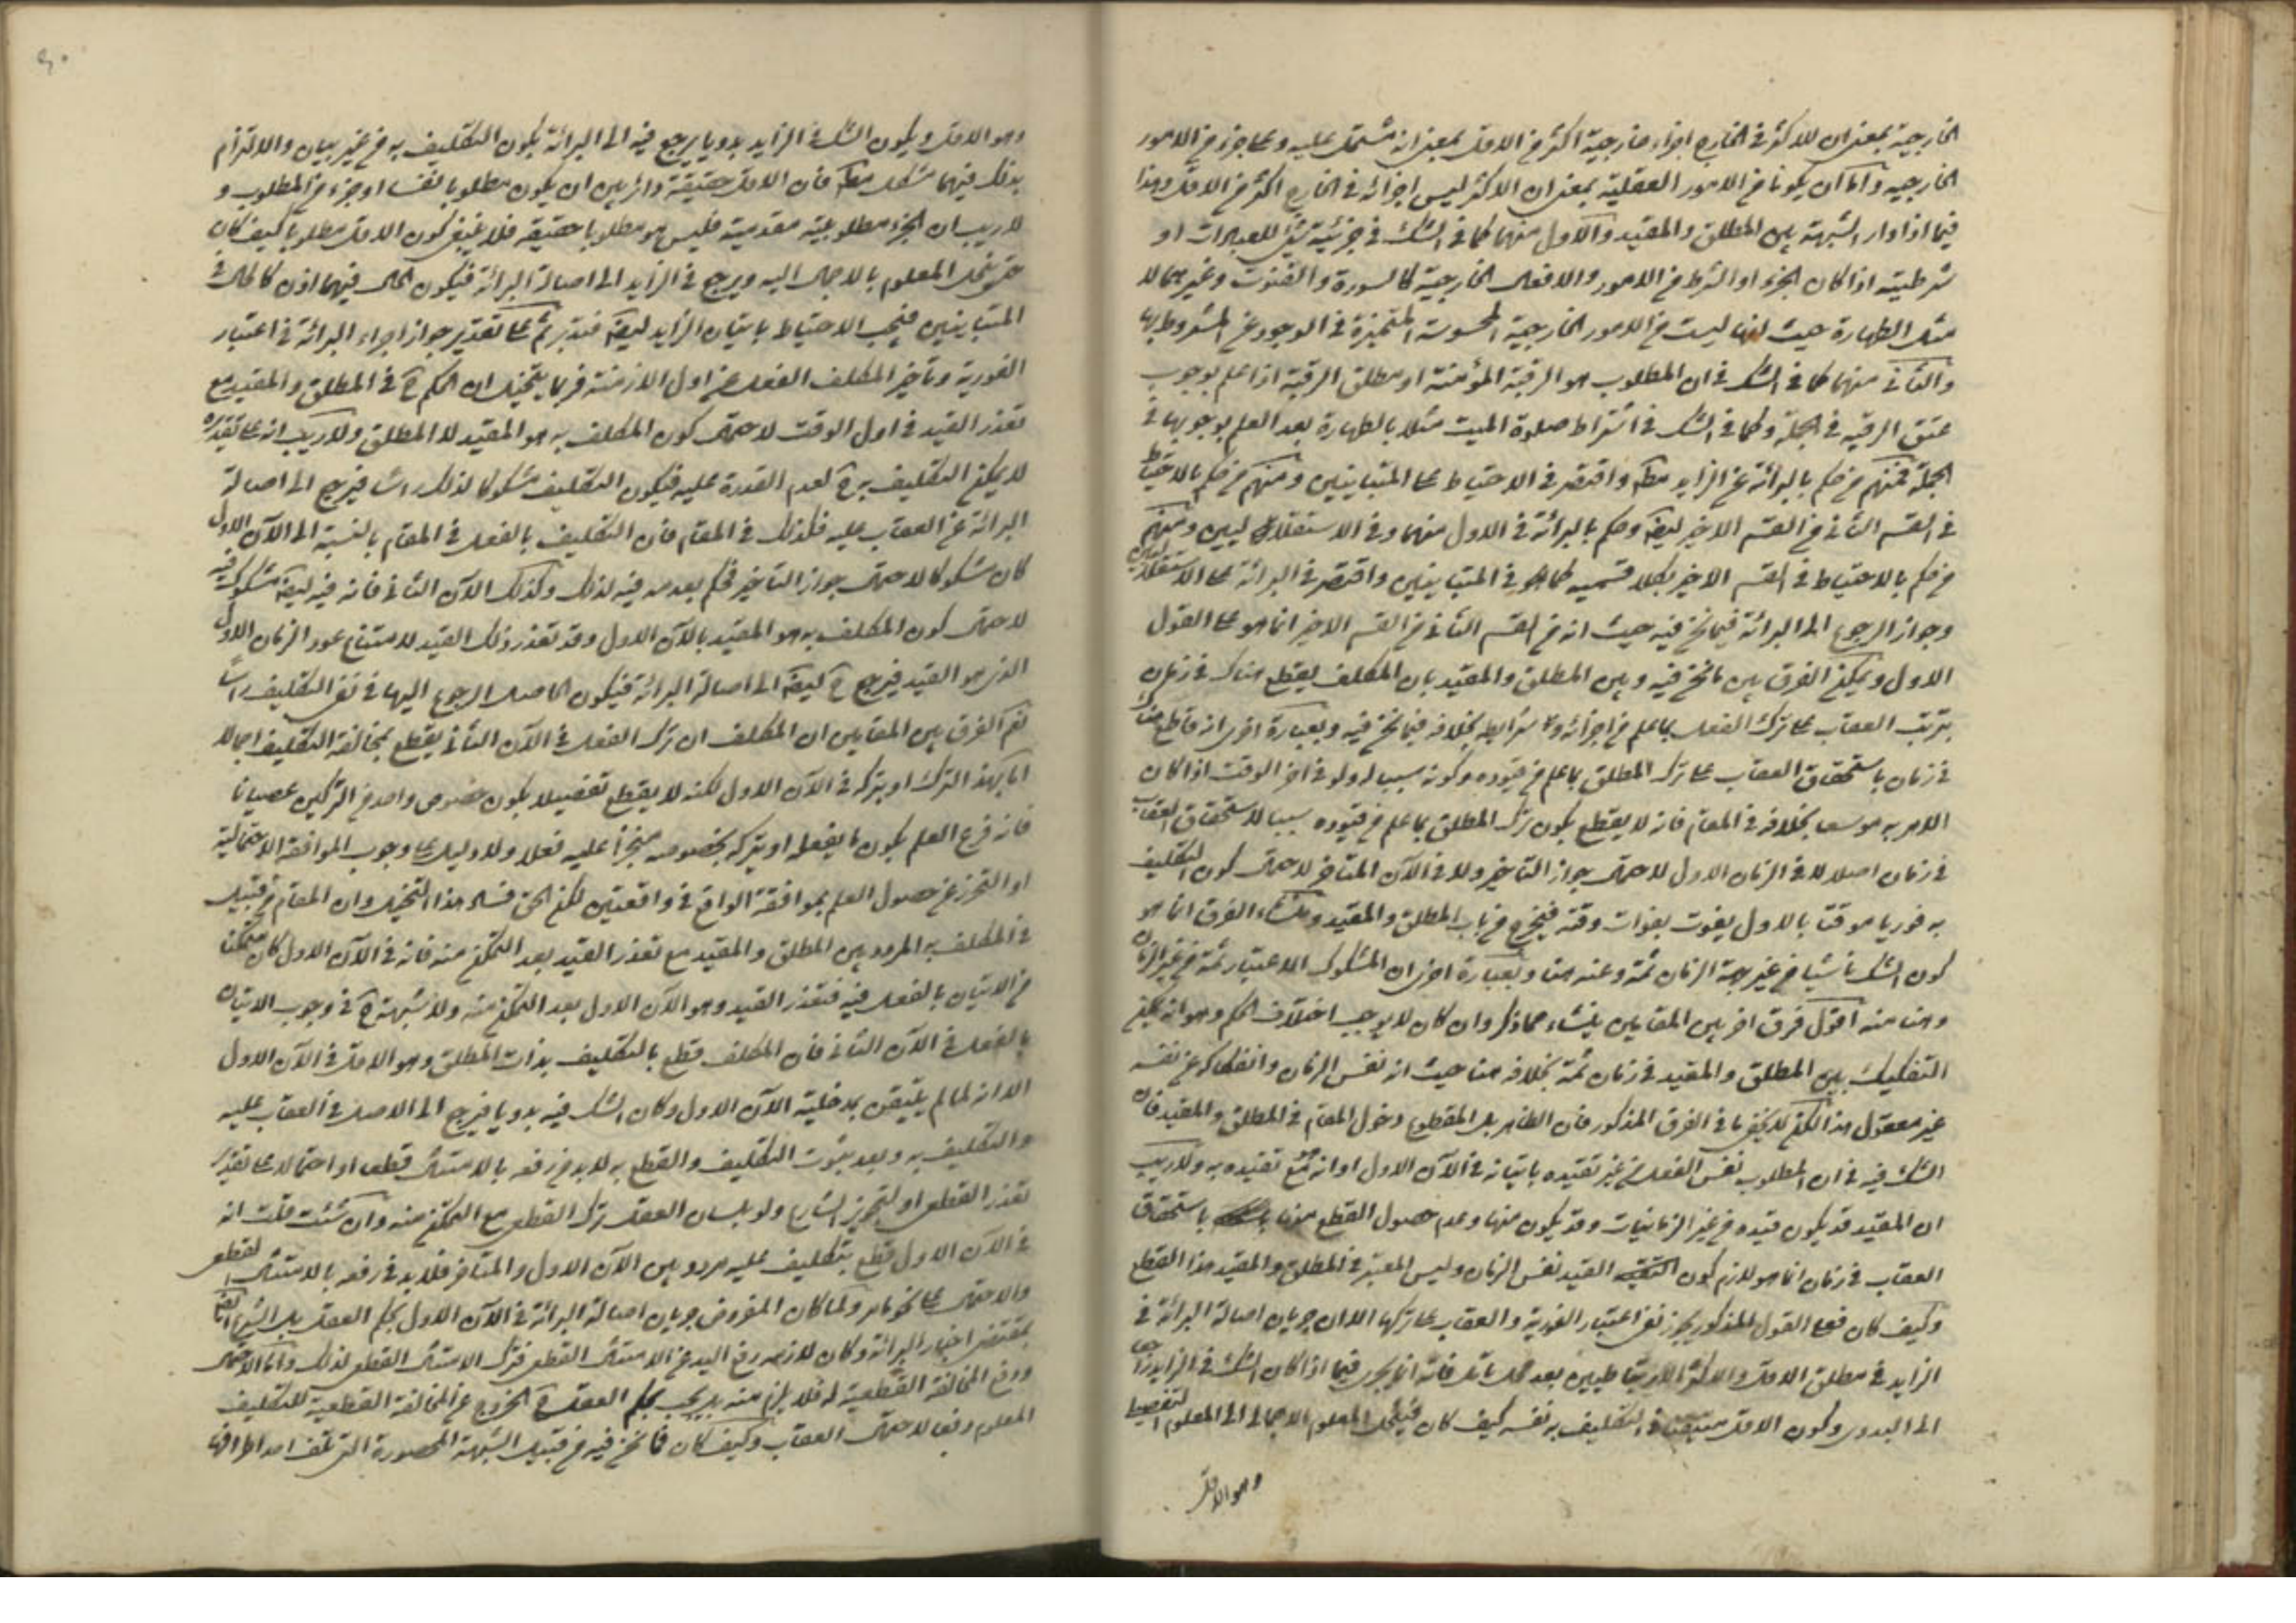 الخارجية بمعنى ان للاكثر في الخارج اجزاء خارجية اكثر من الاقل بمعنى انه مشتمل عليه وعلى جزء من الامور
الخارجيه واما ان يكونا من الامور العقلية بمعنى ان الاكثر ليس اجزائه في الخارج اكثر من الاقل وهذا
فيما اذا دار الشبهة بين المطلق والمقيد والاول منهما كما في الشك في جزئية شئ للعبادات او
شرطيته اذا كان الجزء او الشرط من الامور والافعال الخارجية كالسورة والقنوت وغيرهما لا
مثل الطهارة حيث انها ليست من الامور الخارجية المحسوسة المتميزة في الوجود عن المشروط بها
والثاني منهما كما في الشك في ان المطلوب هو الرقبة المؤمنة او مطلق الرقبة اذا علم بوجوب
عتق الرقبه في الجملة وكما في الشك في اشتراط صلوة الميت مثلا بالطهارة بعد العلم بوجوبها في
الجملة فمنهم من حكم بالبرائة عن الزايد مطلقا واقتصر في الاحتياط على المتباينين ومنهم من حكم بالاحتياط
في القسم الثاني من القسم الاخير ايضا وحكم بالبرائة في الاول منهما وفي الاستقلاليين ومنهم
من حكم بالاحتياط في القسم الاخير بكلا قسميه كما هو في المتباينين واقتصر في البرائة على الاستقلاليين
وجواز الرجوع الى البرائة فيما نحن فيه حيث انه من القسم الثاني من القسم الاخير انما هو على القول
الاول ويمكن الفرق بين ما نحن فيه وبين المطلق والمقيد بان المكلف يقطع هناك في زمان
بترتب العقاب على ترك الفعل بما علم من اجزائه وشرايطه بخلافه فيما نحن فيه وبعبارة اخرى انه قاطع هناك
في زمان باستحقاق العقاب على ترك المطلق بما علم من قيوده وكونه سببا له ولو في اخر الوقت اذا كان
الامر به موسعا بخلافه في المقام فانه لا يقطع بكون ترك المطلق بما علم من قيوده سببا لاستحقاق العقاب
في زمان اصلا لا في الزمان الاول لاحتمال جواز التاخير ولا في الآن المتاخر لاحتمال كون التكليف
به فوريا موقتا بالاول يفوت بفوات وقته فيخرج من باب المطلق والمقيد ومنشاء الفرق انما هو
كون الشك ناشيا من غير جهة الزمان ثمة وعنه هنا وبعبارة اخرى ان المشكوك الاعتبار ثمة من غير الزمان
وهنا منه اقول فرق اخر بين المقامين ينشاء مما ذكر وان كان لا يوجب اختلاف الحكم وهو انه يمكن
التفكيك بين المطلق والمقيد في زمان ثمة بخلافه هنا حيث انه نفس الزمان وانفكاكه عن نفسه
غير معقول هذا لكن لا يخفى ما في الفرق المذكور فان الظاهر بل المقطوع دخول المقام في المطلق والمقيد فان
الشك فيه في ان المطلوب نفس الفعل من غير تقيده باتيانه في الآن الاول او انه مع تقيده به ولا ريب
ان المقيد قد يكون قيده من غير الزمانيات وقد يكون منها وعدم حصول القطع هنا باستحقاق
العقاب في زمان انما هو لازم كون القيد نفس الزمان وليس المعتبر في المطلق والمقيد هذا القطع
وكيف كان فعلى القول المذكور يجوز نفى اعتبار الفورية والعقاب على تركها الا ان جريان اصالة البرائة في
الزايد في مطلق الاقل والاكثر الارتباطيين بعد محل تامل فانه انما يجرى فيما اذا كان الشك في الزايد راجعا
الى البدوى وكون الاقل متيقنا في التكليف به نفسه كيف كان فينحل المعلوم الاجمالى الى المعلوم التفصيلى
وهو الاقل
وهو الاقل ويكون الشك في الزايد بدويا يرجع فيه الى البرائة بكون التكليف به من غير بيان والالتزام
بذلك فيهما مشكل مطلقا فان الاقل حقيقة دائر بين ان يكون مطلوبا نفسا او جزء من المطلوب و
لا ريب ان الجزء مطلوبيته مقدمية فليس هو مطلوبا حقيقه فلا يتيقن كون الاقل مطلوبا كيف كان
حتى ينحل المعلوم بالاجمال اليه ويرجع في الزايد الى اصالة البرائة فيكون الحال فيهما اذن كالحال في
المتباينين فيجب الاحتياط باتيان الزايد ايضا فتدبر ثم على تقدير جواز اجراء البرائة في اعتبار
الفورية وتأخير المكلف الفعل عن اول الازمنة فربما يتخيل ان الحكم ح في المطلق والمقيد مع
تعذر القيد في اول الوقت لاحتمال كون المكلف به هو المقيد لا المطلق ولا ريب انه على تقديره
لا يمكن التكليف به ح لعدم القدرة عليه فيكون التكليف مشكوكا لذلك راسا فيرجع الى اصالة
البرائة عن العقاب عليه فكذلك في المقام فان التكليف بالفعل في المقام بالنسبة الى الآن الاول
كان مشكوكا لاحتمال جواز التاخير فحكم بعدمه فيه لذلك وكذلك الآن الثاني فانه فيه ايضا مشكوك فيه
لاحتمال كون المكلف به هو المقيد بالآن الاول وقد تعذر ذلك القيد لامتناع عود الزمان الاول
الذى هو القيد فيرجع ح ايضا الى اصالة البرائة فيكون الحاصل الرجوع اليها في نفى التكليف راسا
نعم الفرق بين المقامين ان المكلف ان ترك الفعل في الآن الثاني يقطع بمخالفة التكليف اجمالا
اما بهذا الترك او بتركه في الآن الاول لكنه لا يقطع تفصيلا بكون خصوص واحد من التركين عصيانا
فانه فرع العلم بكون ما يفعله او يتركه بخصوصه منجزا عليه فعلا ولا دليل على وجوب الموافقة الاحتمالية
او التحرز عن حصول العلم بموافقة الواقع في واقعتين لكن الحق فساد هذا التخيل وان المقام من قبيل
في المكلف به المردد بين المطلق والمقيد مع تعذر القيد بعد التمكن منه فانه في الآن الاول كان متمكنا
من الاتيان بالفعل فيه فتعذر القيد وهو الآن الاول بعد التمكن منه ولا شبهة ح في وجوب الاتيان
بالفعل في الآن الثاني فان المكلف قطع بالتكليف بذات المطلق وهو الاقل في الآن الاول
الا انه لما لم يتيقن بمدخلية الآن الاول وكان الشك فيه بدويا فيرجع الى الاصل في العقاب عليه
والتكليف به وبعد ثبوت التكليف والقطع به لا بد من رفعه بالامتثال قطعا او احتمالا على تقدير
تعذر القطعى او لتجويز الشارع ولو بلسان العقل ترك القطعى مع التمكن منه وان شئت قلت انه
في الآن الاول قطع بتكليف عليه مردد بين الآن الاول والمتاخر فلا بد في رفعه بالامتثال القطعى
والاحتمالى على نحو ما مر ولما كان المفروض جريان اصالة البرائة في الآن الاول بحكم العقل بل الشرع ايضا
بمقتضى اخبار البرائة وكان لازمه رفع اليد عن الامتثال القطعى فترك الامتثال القطعى لذلك واما الاحتمالى
ورفع المخالفة القطعية له فلا يلزم منه بل يجب بحكم العقل ح الخروج عن المخالفة القطعية للتكليف
المعلوم دفعا لاحتمال العقاب وكيف كان فما نحن فيه من قبيل الشبهة المحصورة التى تلف احد اطرافها